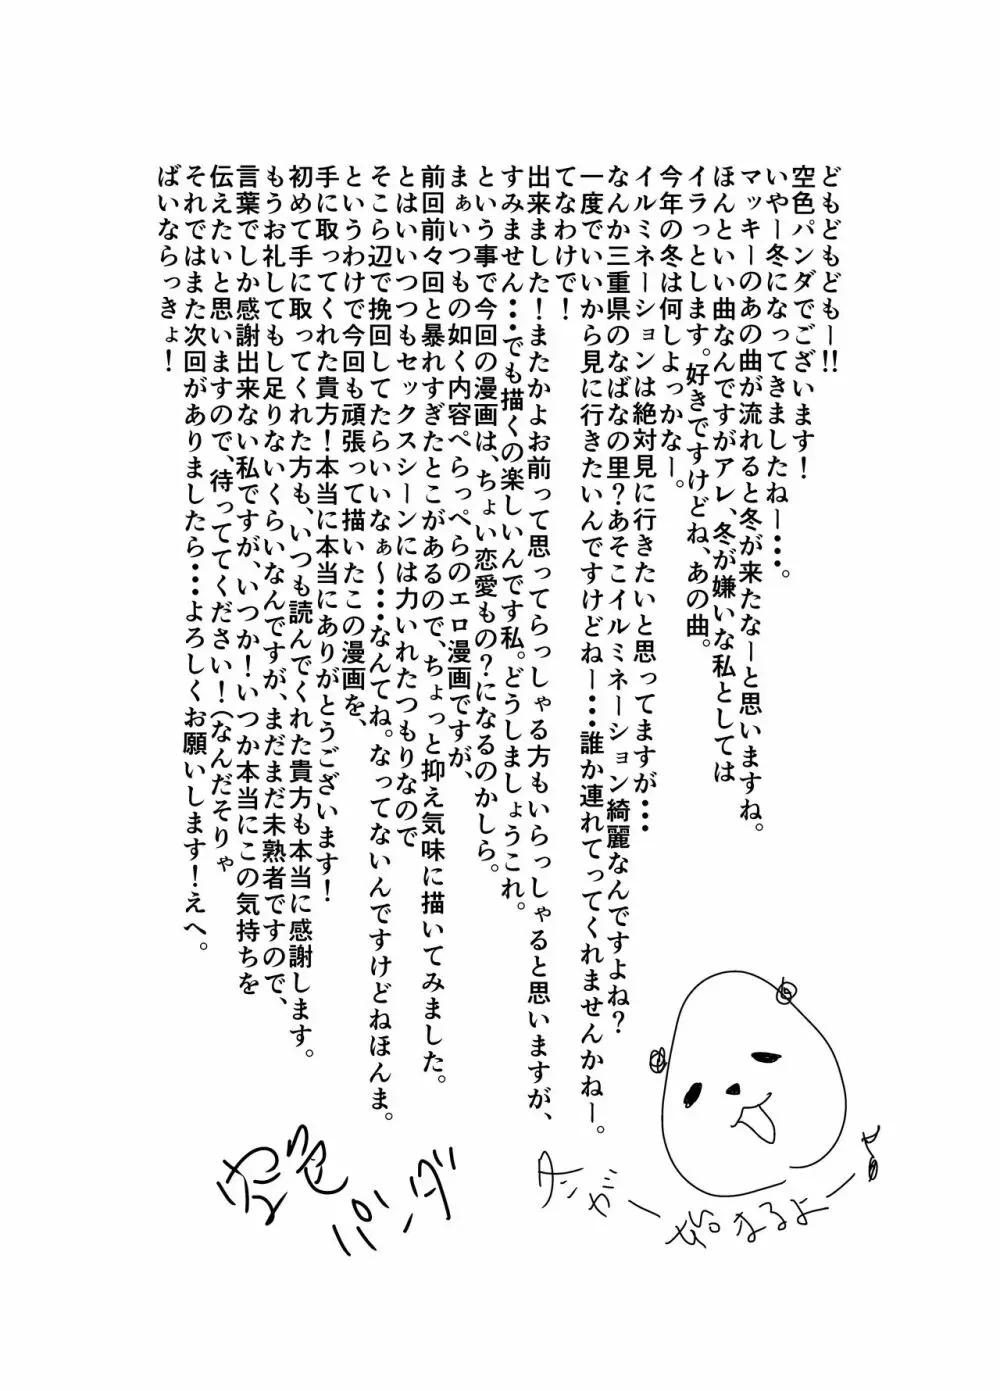 どもどもどもー!!
空色パンダでございます!
いやー冬になってきましたねー・・・。
マッキーのあの曲が流れると冬が来たなーと思いますね。
ほんといい曲なんですがアレ、冬が嫌いな私としては
イラっとします。好きですけどね、あの曲。
今年の冬は何しよっかなー。
イルミネーションは絶対見に行きたいと思ってますが・・・
なんか三重県のなばなの里?あそこイルミネーション綺麗なんですよね?
一度でいいから見に行きたいんですけどねー・・・誰か連れてってくれませんかねー。
てなわけで!
出来ました!またかよお前って思ってらっしゃる方もいらっしゃると思いますが、
すみません・・・でも描くの楽しいんです私。どうしましょうこれ。
という事で今回の漫画は、ちょい恋愛もの?になるのかしら。
まぁいつもの如く内容ぺらっぺらのエロ漫画ですが、
前回前々回と暴れすぎたとこがあるので、ちょっと抑え気味に描いてみました。
とはいいつつもセックスシーンには力いれたつもりなので
そこら辺で挽回してたらいいなぁ～・・・なんてね。なってないんですけどねほんま。
というわけで今回も頑張って描いたこの漫画を、
手に取ってくれた貴方!本当に本当にありがとうございます!
初めて手に取ってくれた方も、いつも読んでくれた貴方も本当に感謝します。
もうお礼してもし足りないくらいなんですが、まだまだ未熟者ですので、
言葉でしか感謝出来ない私ですが、いつか!いつか本当にこの気持ちを
伝えたいと思いますので、待っててください!(なんだそりゃ
それではまた次回がありましたら・・・よろしくお願いします!えへ。
ばいならっきょ!
冬がー始まるよー♪
空色
パンダ